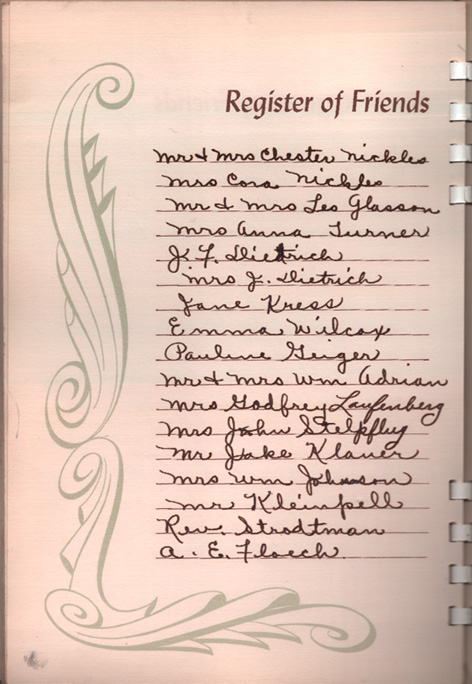 Register of Friends
Mr & Mrs Chester Nickles
Mrs Cora Nickles
Mr & Mrs Les Glasson
Mrs Anna Turner
J. F. Dietrich
Mrs J. Dietrich
Jane Kress
Emma Wilcox
Pauline Geiger
Mr & Mrs Wm Adrian
Mrs Godfrey Laufenberg
Mrs John Stelpflug
Mr Jake Klauer
Mrs Wm Johnson
Mr Kleinpell
Rev. Strodtman
A. E. Floech